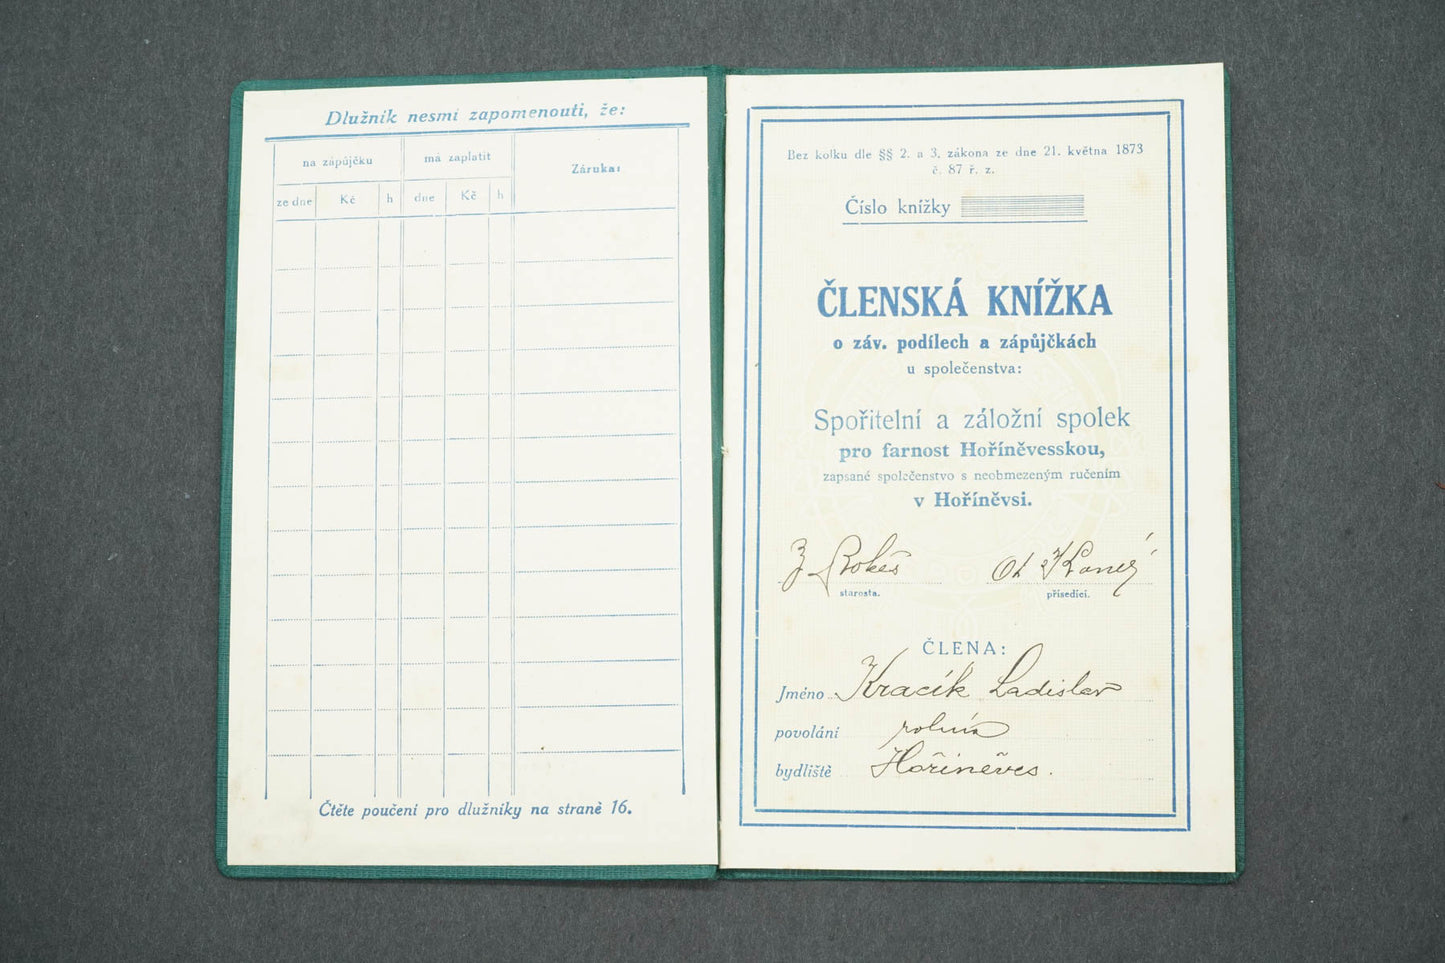 Dlužník nesmí zapomenouti, že:
na zápůjčku
má zaplatit
Záruka:
ze dne
Kč
h
dne
Kč
h
Čtěte poučení pro dlužníky na straně 16.
Bez kolku dle §§ 2. a 3. zákona ze dne 21. května 1873
č. 87 ř. z.
Číslo knížky
ČLENSKÁ KNÍŽKA
o záv. podílech a zápůjčkách
u společenstva:
Spořitelní a záložní spolek
pro farnost Hoříněvesskou,
zapsané společenstvo s neobmezeným ručením
v Hoříněvsi.
starosta.
přísedící.
ČLENA:
Jméno Kracík Ladislav
povolání rolník
bydliště Hořiněves.